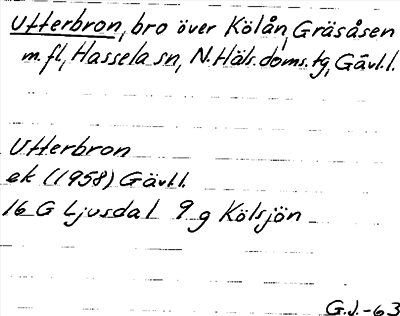 Utterbron, bro över Kölån, Gräsåsen
m.fl, Hassela sn, N.Häls.doms.tg, Gävl.l.
Utterbron
ek (1958) Gävl.l.
16 G Ljusdal 9 g Kölsjön
G.J.-63